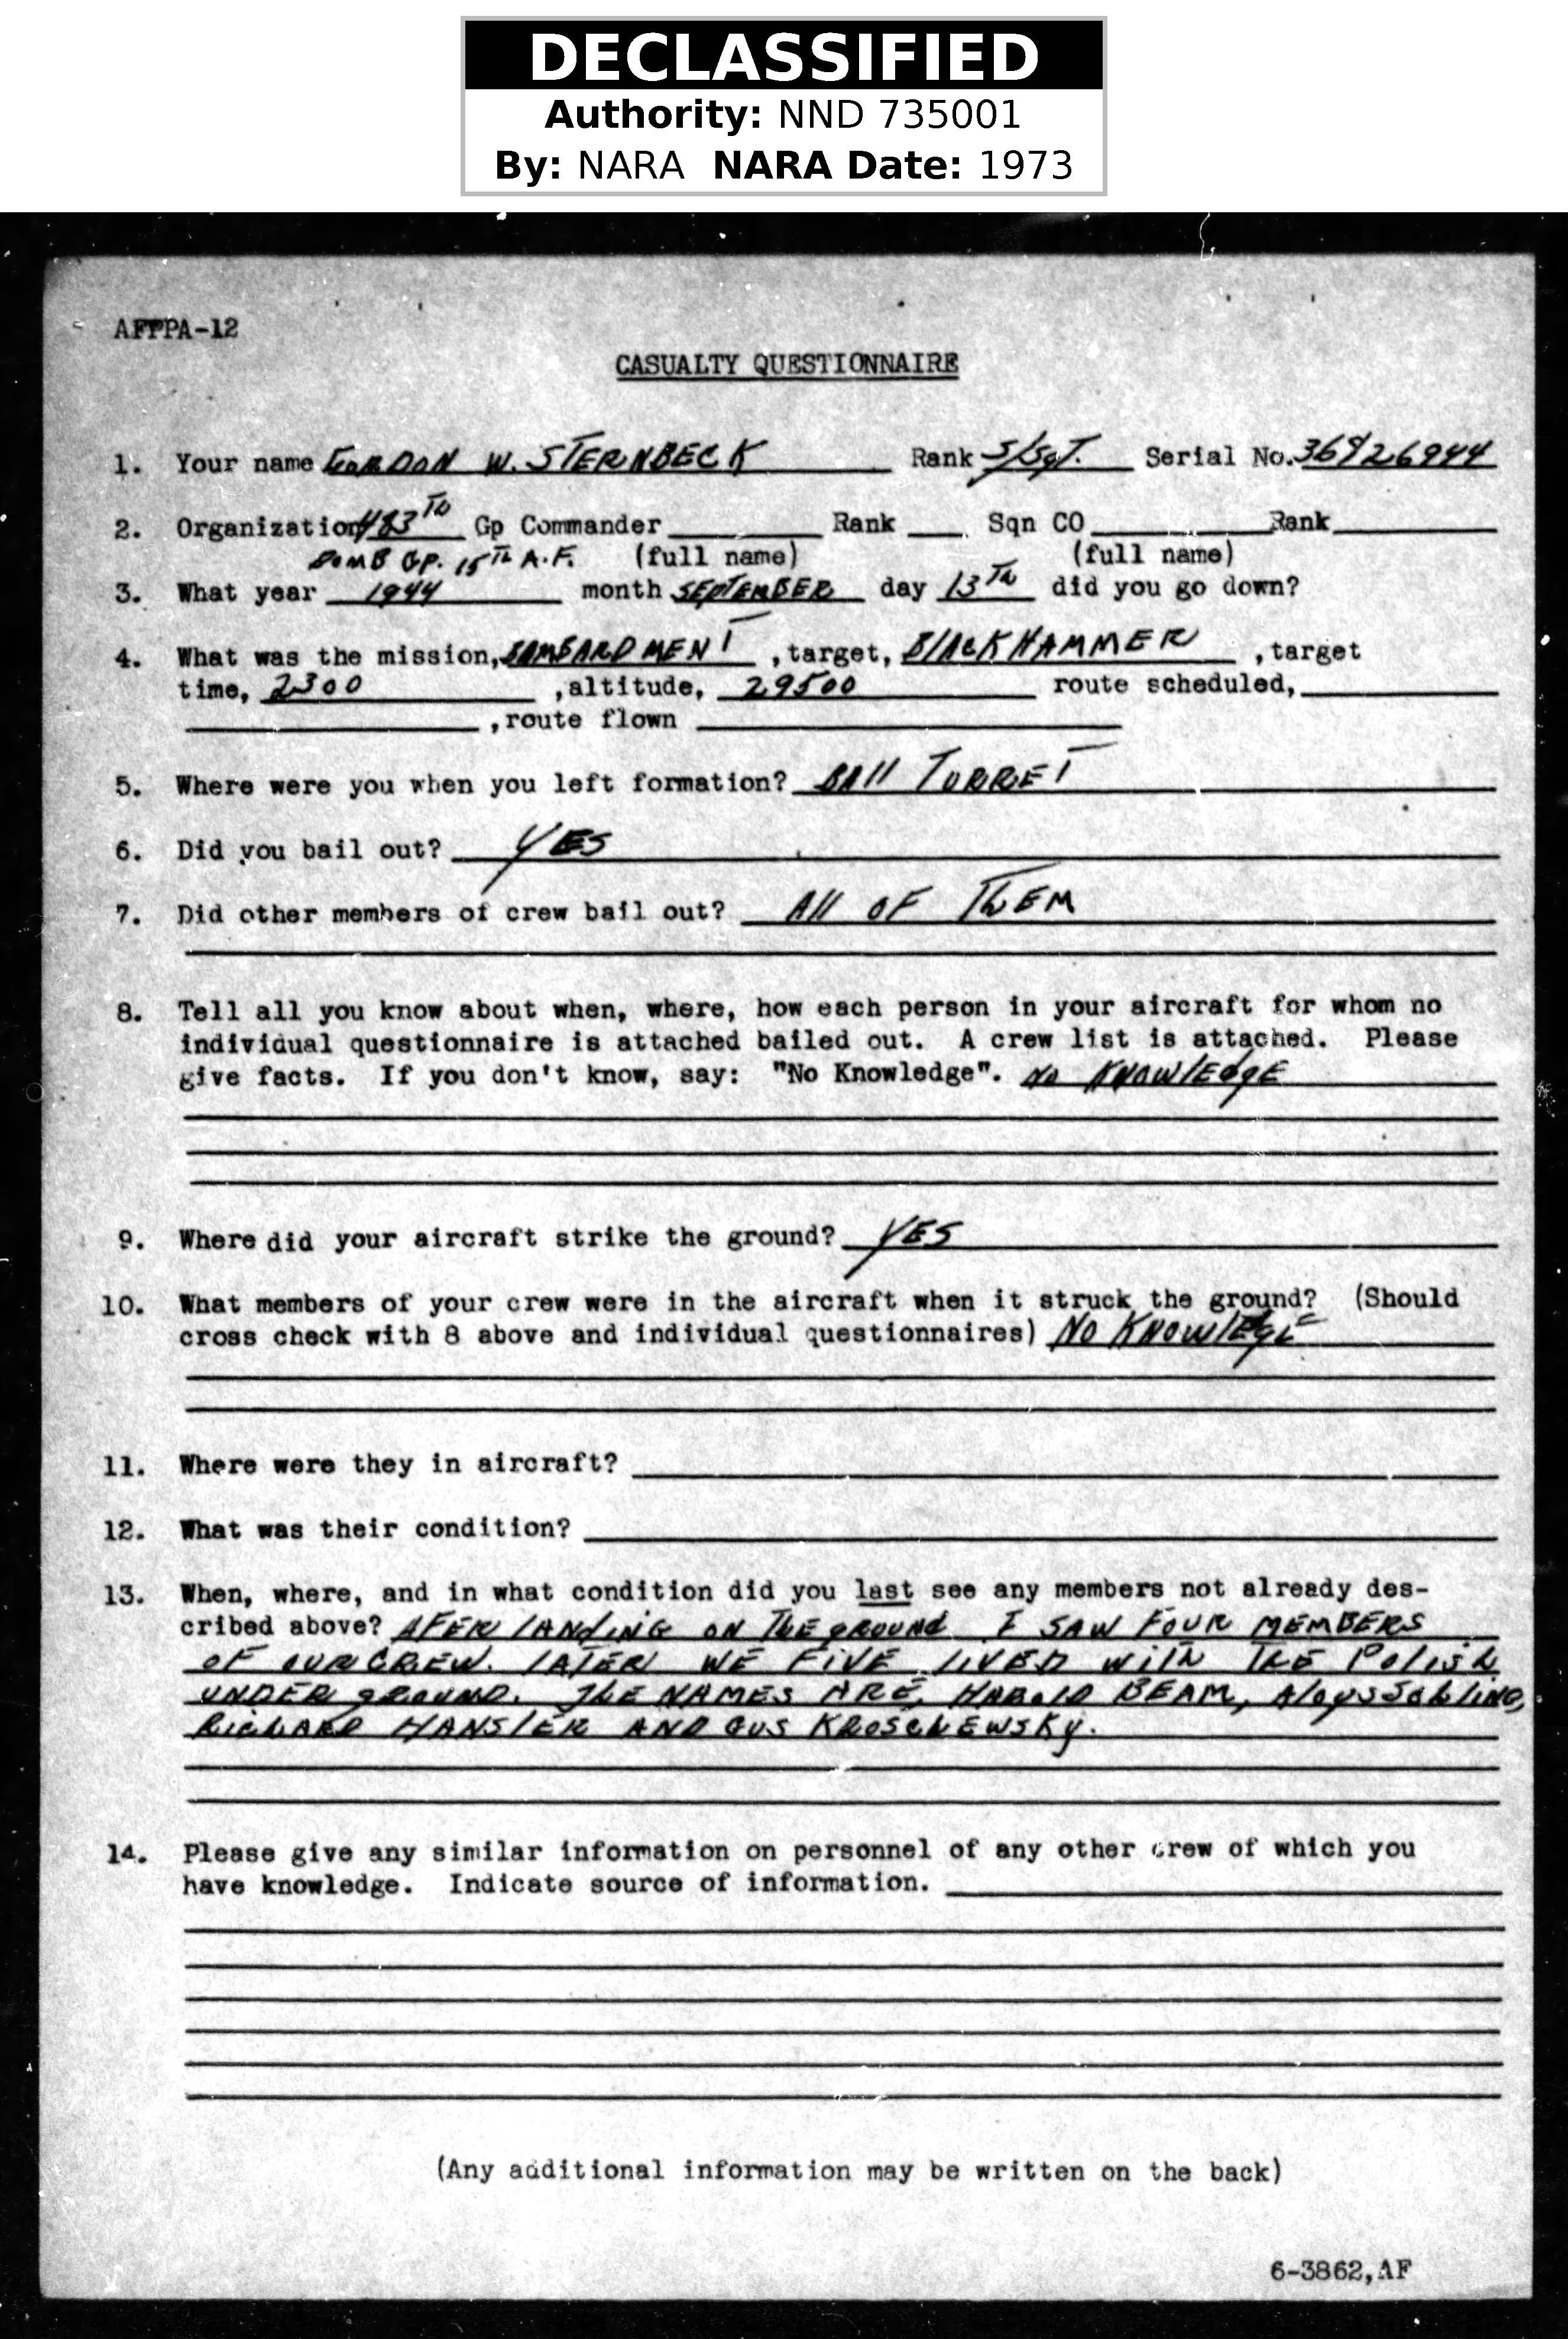 DECLASSIFIED
Authority: NND 735001
By: NARA NARA Date: 1973
AFPPA-12
CASUALTY QUESTIONNAIRE
1. Your name GORDON W. STERNBECK Rank S/Sgt. Serial No.
2. Organization 483TH Gp Commander Rank Sqn CO Rank
BOMB GP. 15TH A.F. (full name) (full name)
3. What year 1944 month SEPTEMBER day 13TH did you go down?
4. What was the mission, BOMBARDMENT, target, BlACKHAMMER, target
time, 2300, altitude, 29500 route scheduled,
, route flown
5. Where were you when you left formation? BAll TURRET
6. Did you bail out? YES
7. Did other members of crew bail out? All OF THEM
8. Tell all you know about when, where, how each person in your aircraft for whom no
individual questionnaire is attached bailed out. A crew list is attached. Please
give facts. If you don't know, say: "No Knowledge". No KNOWlEdgE
9. Where did your aircraft strike the ground? YES
10. What members of your crew were in the aircraft when it struck the ground? (Should
cross check with 8 above and individual questionnaires) NO KNOWlEdgE
11. Where were they in aircraft?
12. What was their condition?
13. When, where, and in what condition did you last see any members not already des-
cribed above? AFER lANdiNG ON ThE gROUNd I SAW FOUR MEMBERS
OF OUR CREW. lATER WE FIVE lIVED WITh THE POlish
UNDER gROUND. ThE NAMES ARE, HAROlD BEAM,
RichARD HANSlER AND GUS KROSChEWSKy.
14. Please give any similar information on personnel of any other crew of which you
have knowledge. Indicate source of information.
(Any additional information may be written on the back)
6-3862,AF